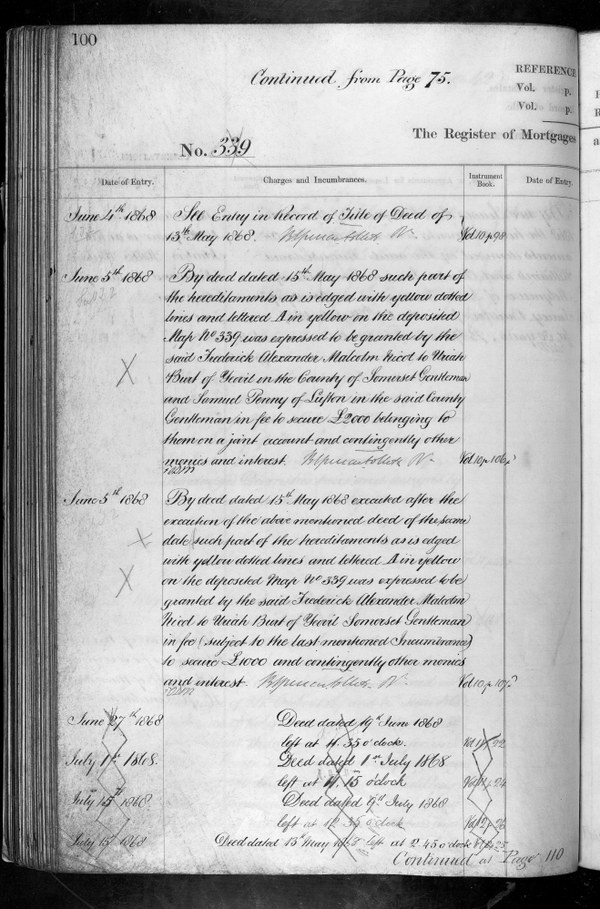 100
Continued from Page 75.
REFERENCE
Vol. p.
Vol. p.
The Register of Mortgages
No. 339
Date of Entry. Charges and Incumbrances. Instrument Book. Date of Entry.
June 4th 1868 See Entry in Record of Title of Deed of
13th May 1868. Vol 10 p 98
June 5th 1868 By deed dated 15th May 1868 such part of
the hereditaments as is edged with yellow dotted
lines and lettered A in yellow on the deposited
Map No 339 was expressed to be granted by the
said Frederick Alexander Malcolm Nicol to Uriah
Burt of Yeovil in the County of Somerset Gentleman
and Samuel Penny of Lufton in the said County
Gentleman in fee to secure £2000 belonging to
them on a joint account and contingently other
monies and interest. Vol 10 p 106
June 5th 1868 By deed dated 15th May 1868 executed after the
execution of the above mentioned deed of the same
date such part of the hereditaments as is edged
with yellow dotted lines and lettered A in yellow
on the deposited Map No 339 was expressed to be
granted by the said Frederick Alexander Malcolm
Nicol to Uriah Burt of Yeovil Somerset Gentleman
in fee (subject to the last mentioned Incumbrance)
to secure £1000 and contingently other monies
and interest. Vol 10 p 107
June 27th 1868 Deed dated 19th June 1868
left at 4.35 o'clock. 22
July 1st 1868. Deed dated 1st July 1868
left at 4.15 o'clock 24
July 15th 1868 Deed dated 9th July 1868
left at 35 o'clock 26
July 15 1868 Deed dated 13th May 1868 left at 2 45 o'clock
Continued at Page 110